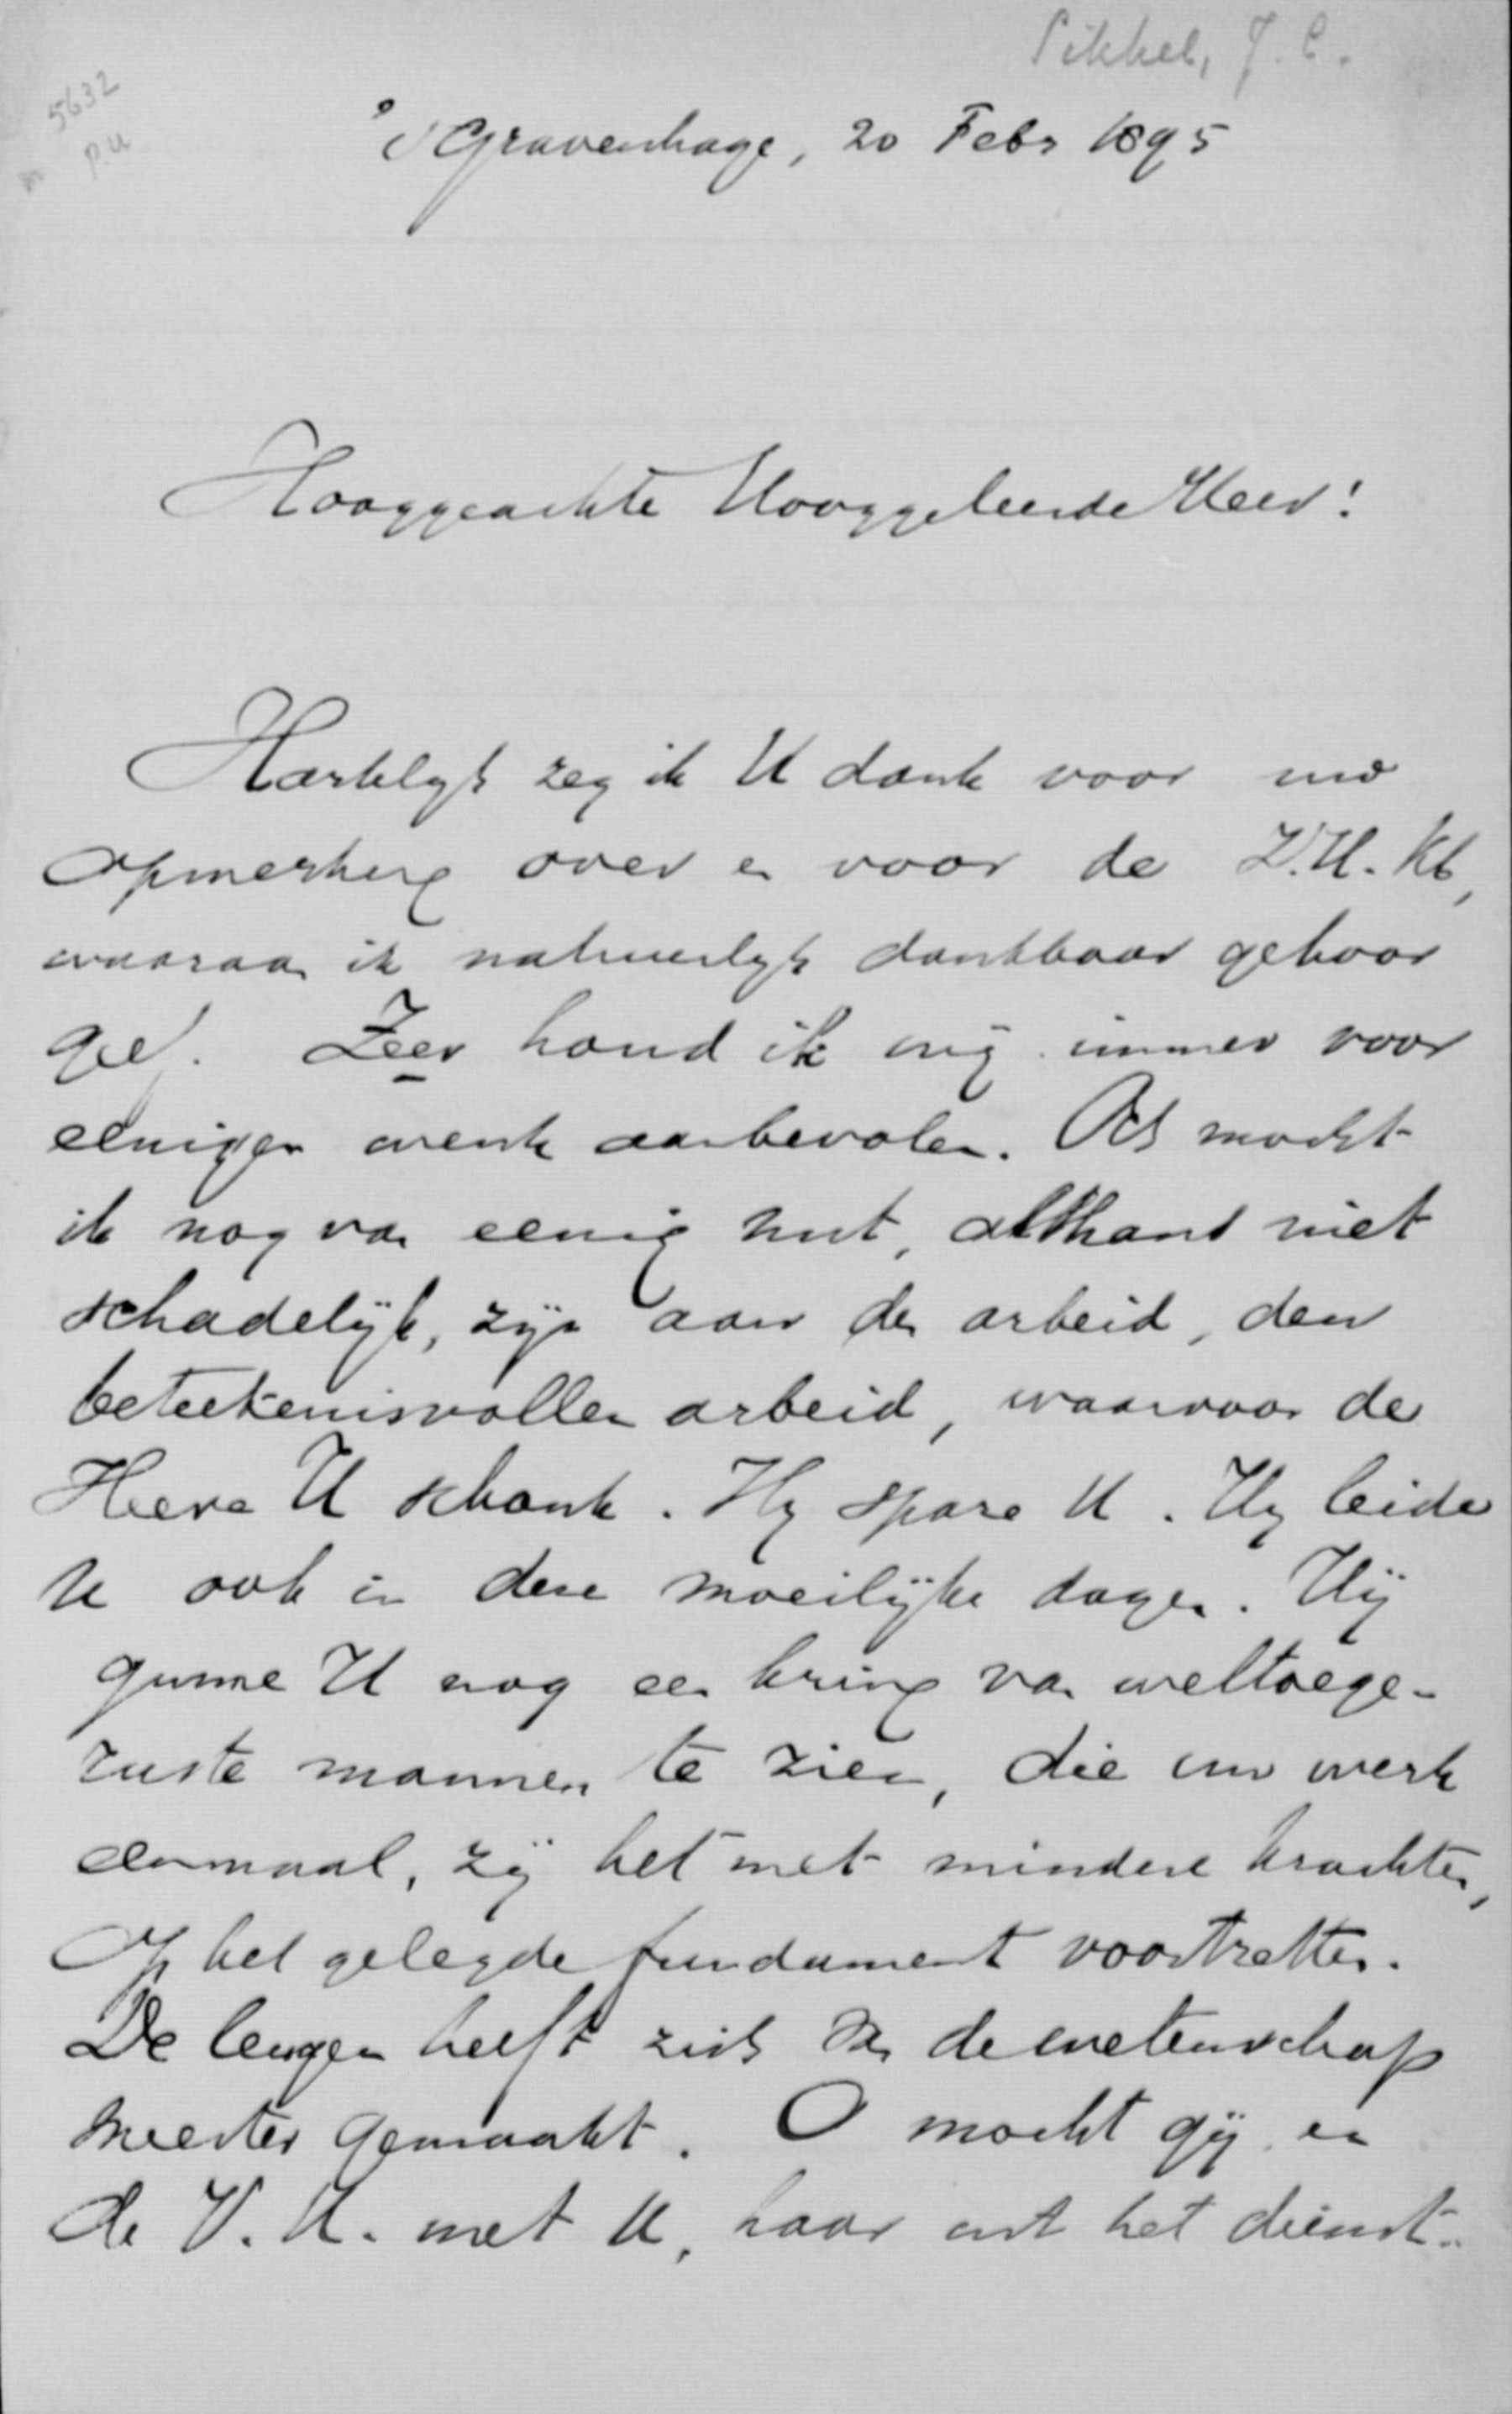 Sikkel, J. C.
5632
p.u
's Gravenhage, 20 Febr 1895
Hooggeachte Hooggeleerde Heer!
Hartelijk zeg ik U dank voor uw
opmerking over en voor de Z.H. Kb,
waaraan ik natuurlijk dankbaar gehoor
geef. Zeer houd ik mij immer voor
eenigen wenk aanbevolen. Och mocht
ik nog van eenig nut, althans niet
schadelijk, zijn aan den arbeid, den
beteekenisvollen arbeid, waarvoor de
Heere U schonk. Hij spare U. Hij leide
U ook in deze moeilijke dagen. Hij
gunne U nog een kring van weltoege-
ruste mannen te zien, die uw werk
eenmaal, zij het met mindere krachten,
op het gelegde fundament voortzetten.
De leugen heeft zich van de wetenschap
meester gemaakt. O mocht gij en
de V. U. met U, haar uit het dienst-